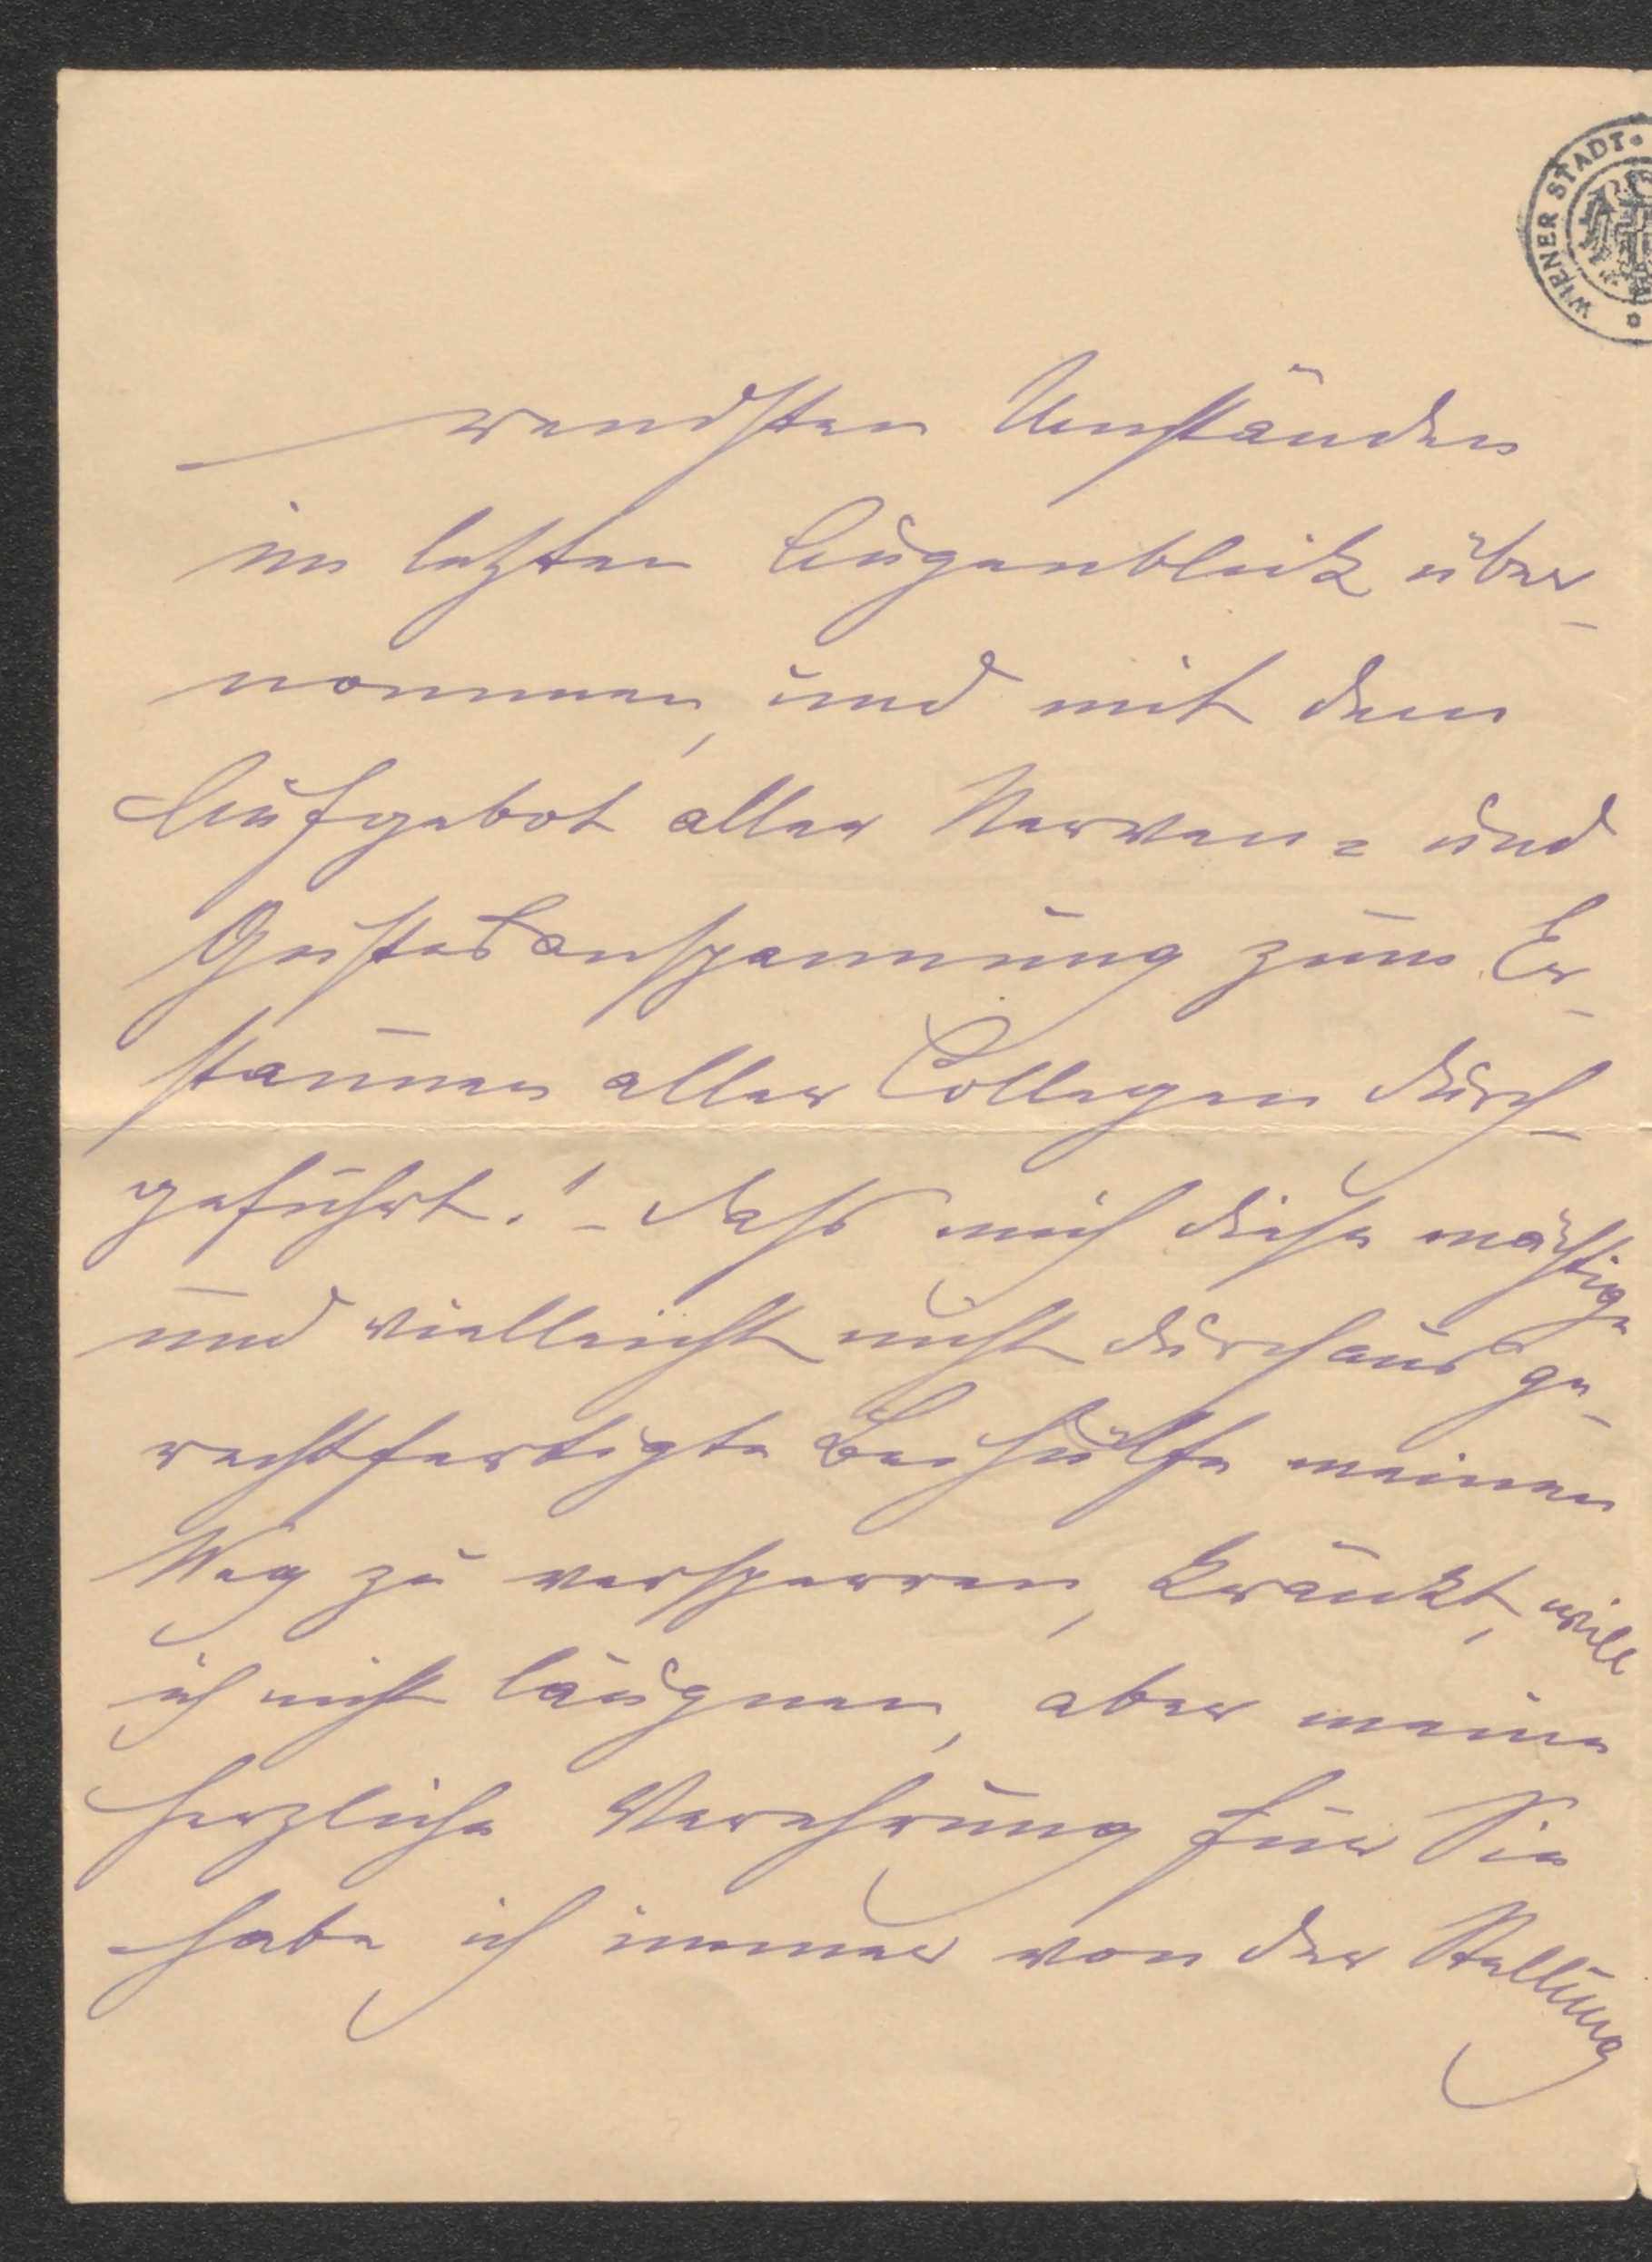 WIENER STADT
rendsten Umständen
im letzten Augenblick über-
nommen, und mit dem
Aufgebot aller Nerven- und
Geistesanspannung zum Er-
staunen aller Collegen durch-
geführt! – Dass mich diese mächtige
und vielleicht nicht durchaus ge-
rechtfertigte Beihülfe meinen
Weg zu versperren, kränkt, will
ich nicht läugnen, aber meine
herzliche Verehrung für Sie
habe ich immer von der Stellung